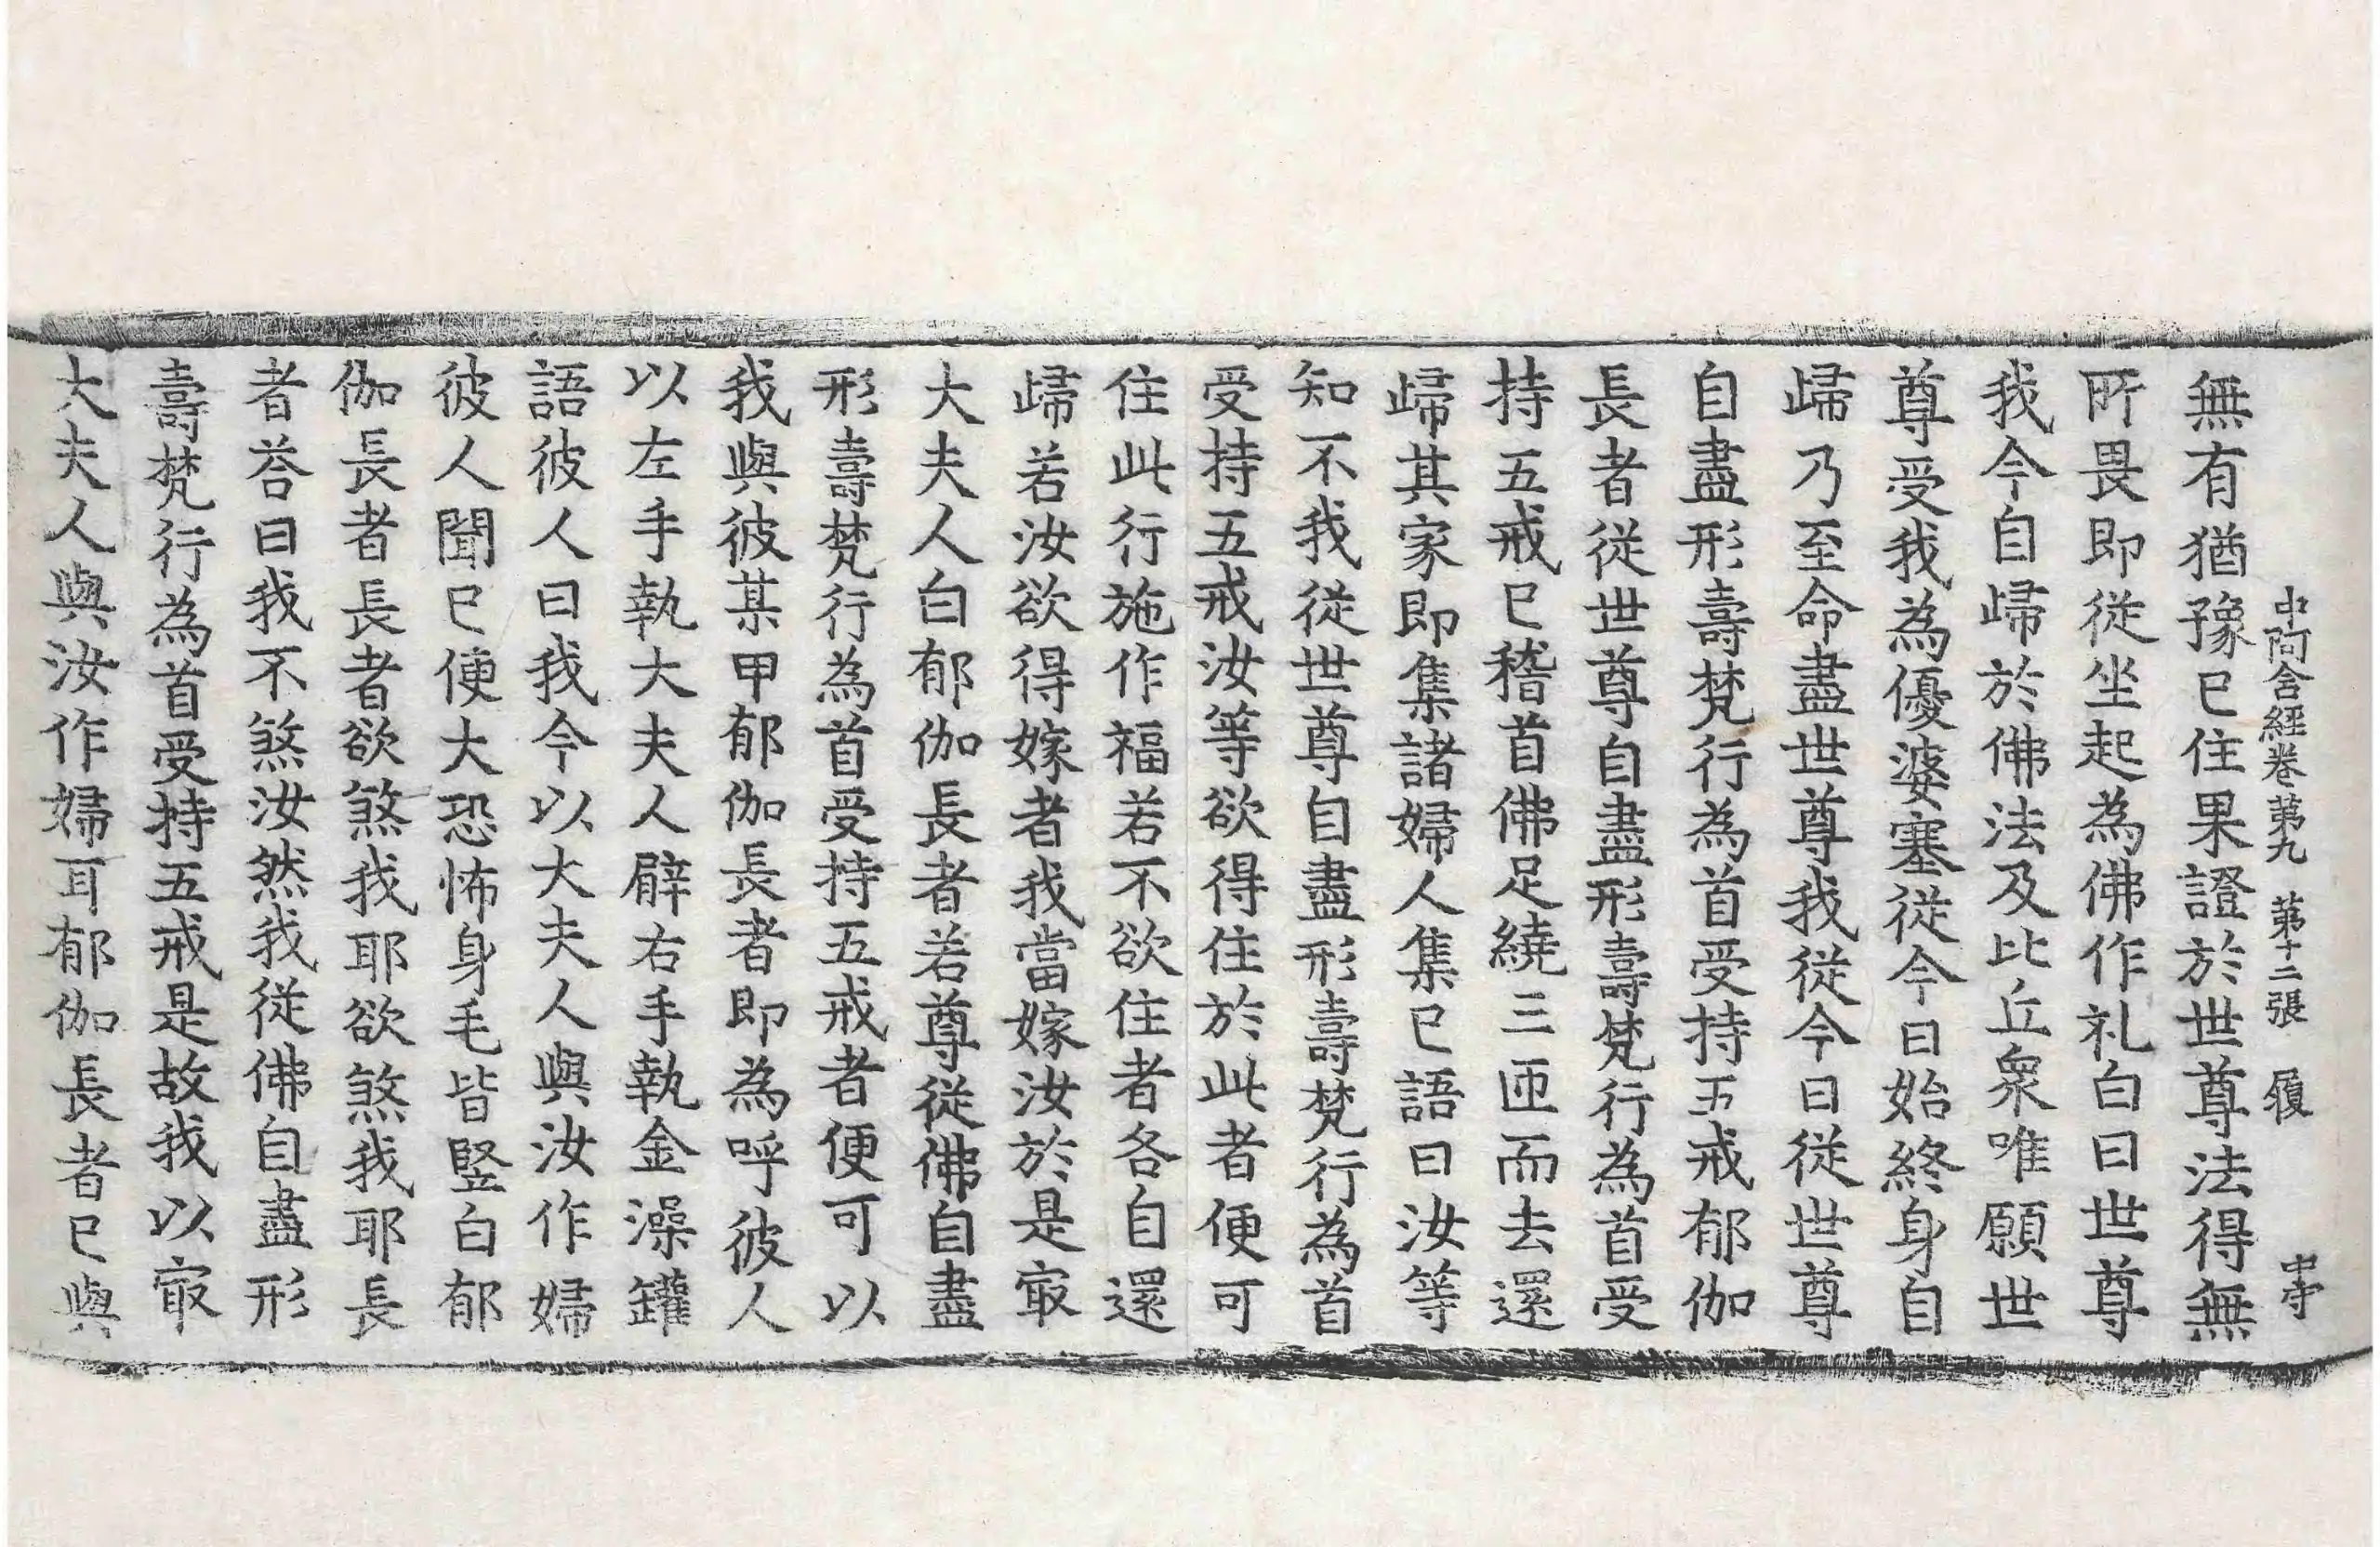 中阿含經卷第九 第十二張 履 中守
無有猶豫已住果證於世尊法得無
所畏即從坐起為佛作礼白曰世尊
我今自歸於佛法及比丘衆唯願世
尊受我為優婆塞從今日始終身自
歸乃至命盡世尊我從今日從世尊
自盡形壽梵行為首受持五戒郁伽
長者從世尊自盡形壽梵行為首受
持五戒已稽首佛足繞三匝而去還
歸其家即集諸婦人集已語曰汝等
知不我從世尊自盡形壽梵行為首
受持五戒汝等欲得住於此者便可
住此行施作福若不欲住者各自還
歸若汝欲得嫁者我當嫁汝於是㝡
大夫人白郁伽長者若尊從佛自盡
形壽梵行為首受持五戒者便可以
我與彼某甲郁伽長者即為呼彼人
以左手執大夫人臂右手執金澡罐
語彼人曰我今以大夫人與汝作婦
彼人聞已便大恐怖身毛皆竪白郁
伽長者長者欲煞我耶欲煞我耶長
者荅曰我不煞汝然我從佛自盡形
壽梵行為首受持五戒是故我以㝡
大夫人與汝作婦耳郁伽長者已與